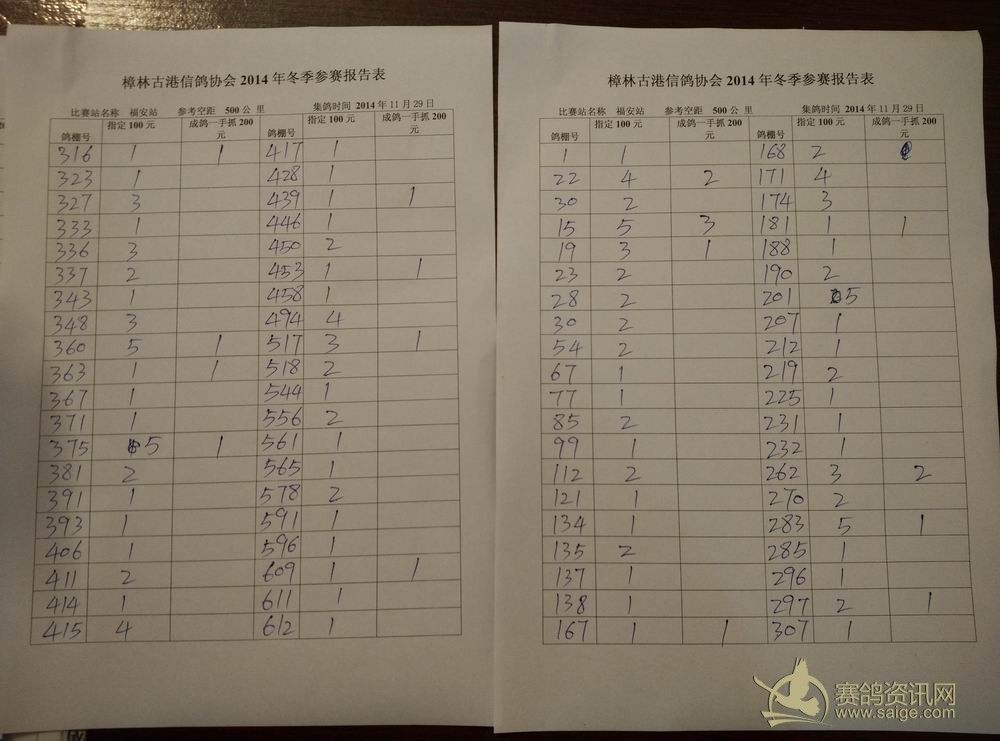 樟林古港信鸽协会 2014 年冬季参赛报告表
比赛站名称 福安站 参考空距 500 公 里 集鸽时间 2014 年 11 月 29 日
鸽棚号 指定 100 元 成鸽一手抓 200 元 鸽棚号 指定 100 元 成鸽一手抓 200 元
316 1 1 417 1
323 1 428 1
327 3 439 1 1
333 1 446 1
336 3 450 2
337 2 453 1 1
343 1 458 1
348 3 494 4
360 5 1 517 3 1
363 1 1 518 2
367 1 544 1
371 1 556 2
375 5 1 561 1
381 2 565 1
391 1 578 2
393 1 591 1
406 1 596 1
411 2 609 1 1
414 1 611 1
415 4 612 1
樟林古港信鸽协会 2014 年冬季参赛报告表
比赛站名称 福安站 参考空距 500 公 里 集鸽时间 2014 年 11 月 29 日
鸽棚号 指定 100 元 成鸽一手抓 200 元 鸽棚号 指定 100 元 成鸽一手抓 200 元
1 1 168 2
22 4 2 171 4
30 2 174 3
15 5 3 181 1 1
19 3 1 188 1
23 2 190 2
28 2 201 5
30 2 207 1
54 2 212 1
67 1 219 2
77 1 225 1
85 2 231 1
99 1 232 1
112 2 262 3 2
121 1 270 2
134 1 283 5 1
135 2 285 1
137 1 296 1
138 1 297 2 1
167 1 1 307 1
赛鸽资讯网
www.saige.com